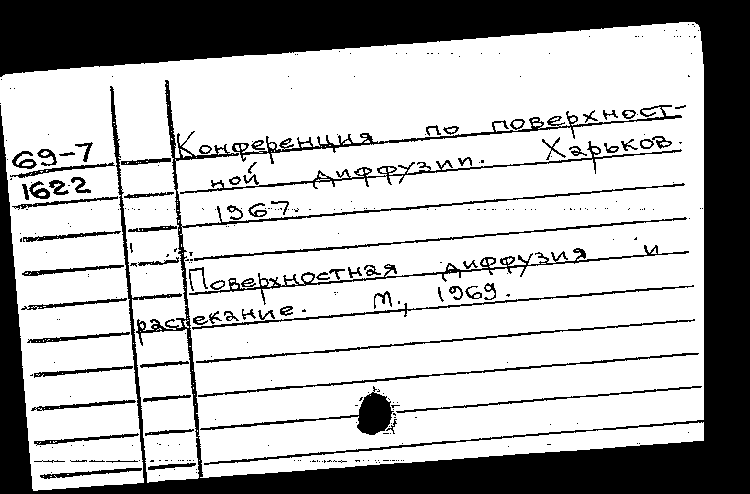 69-7
1622
Конференция по поверхност-
ной диффузии. Харьков.
1967.
Поверхностная диффузия и
растекание. М., 1969.